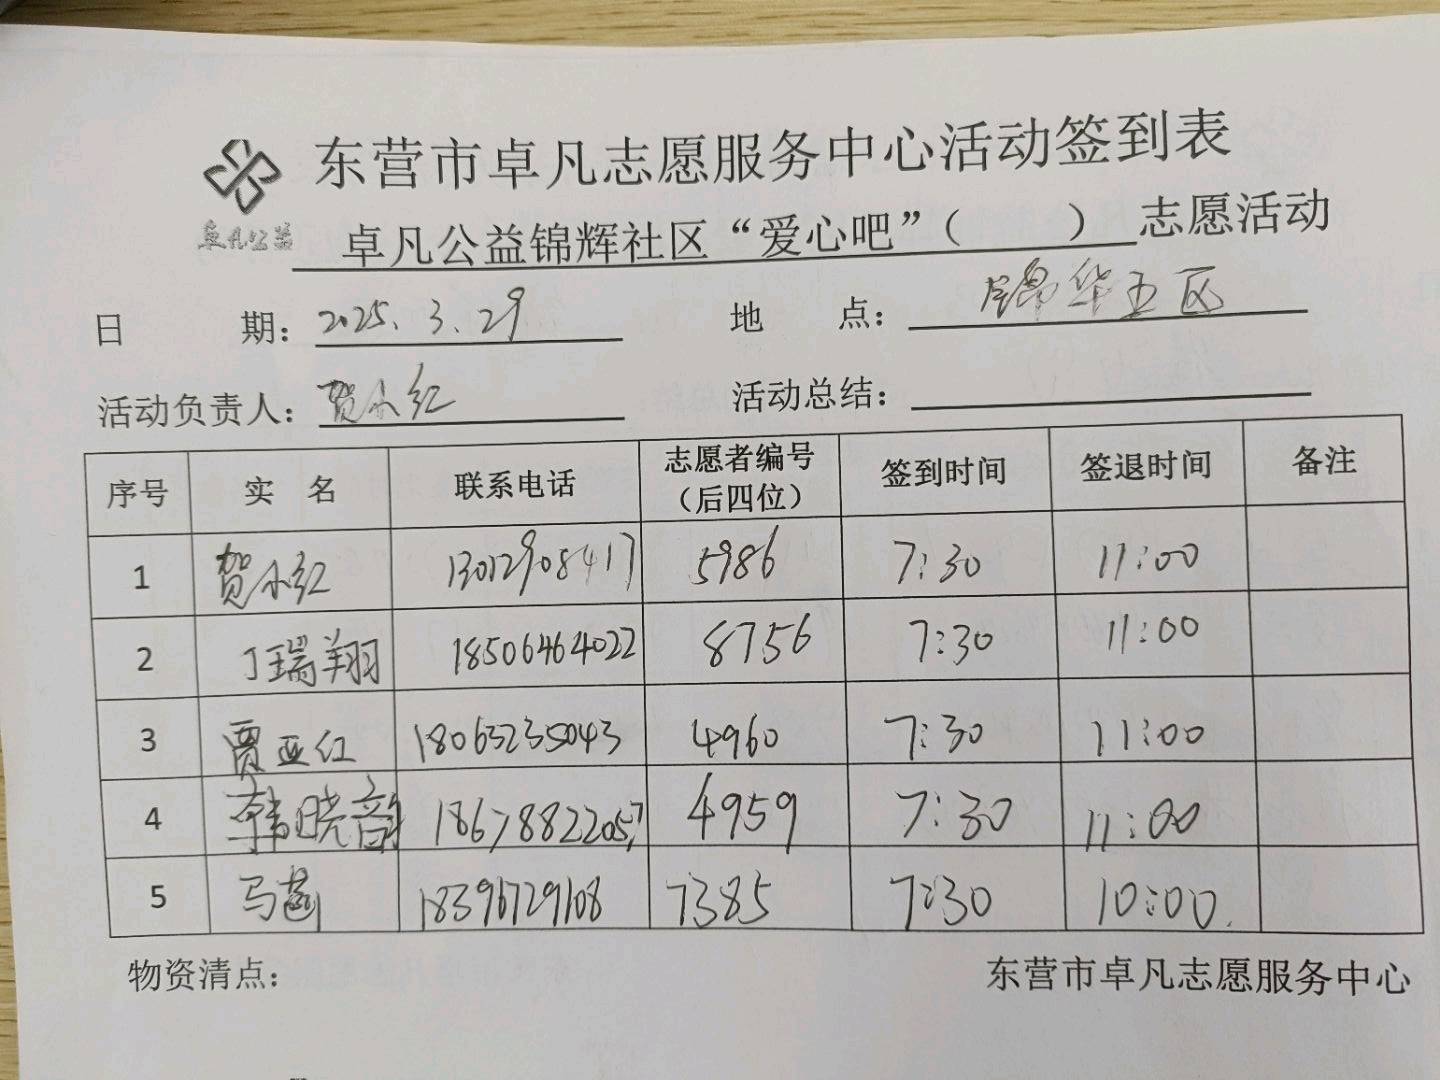 东营市卓凡志愿服务中心活动签到表
卓凡公益
卓凡公益锦辉社区“爱心吧”（ ）志愿活动
日 期：2025.3.29 地 点：锦华五区
活动负责人：贺小红 活动总结：
序号 实 名 联系电话 志愿者编号（后四位） 签到时间 签退时间 备注
1 贺小红 13012908417 5986 7:30 11:00
2 丁瑞翔 18506464022 8756 7:30 11:00
3 贾亚红 18063235043 4960 7:30 11:00
4 韩晓韵 18678822057 4959 7:30 11:00
5 马菡 18396729108 7385 7:30 10:00.
物资清点： 东营市卓凡志愿服务中心